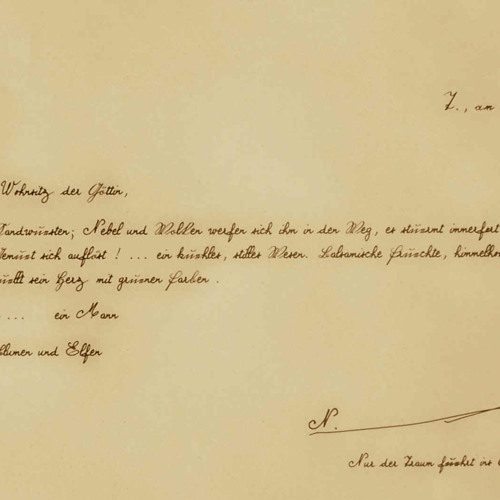 Z., am
Wohnsitz der Göttin,
Sandwuesten; Nebel und Wolken werfen sich ihm in den Weg, es stuermt immerfort
sich aufløst ! ... ein kuehles, stilles Wesen. Balsamische Fruechte,
sein Herz mit gruenen Farben .
... ein Mann
Blumen und Elfen
N.
Nur der Traum fuehrt